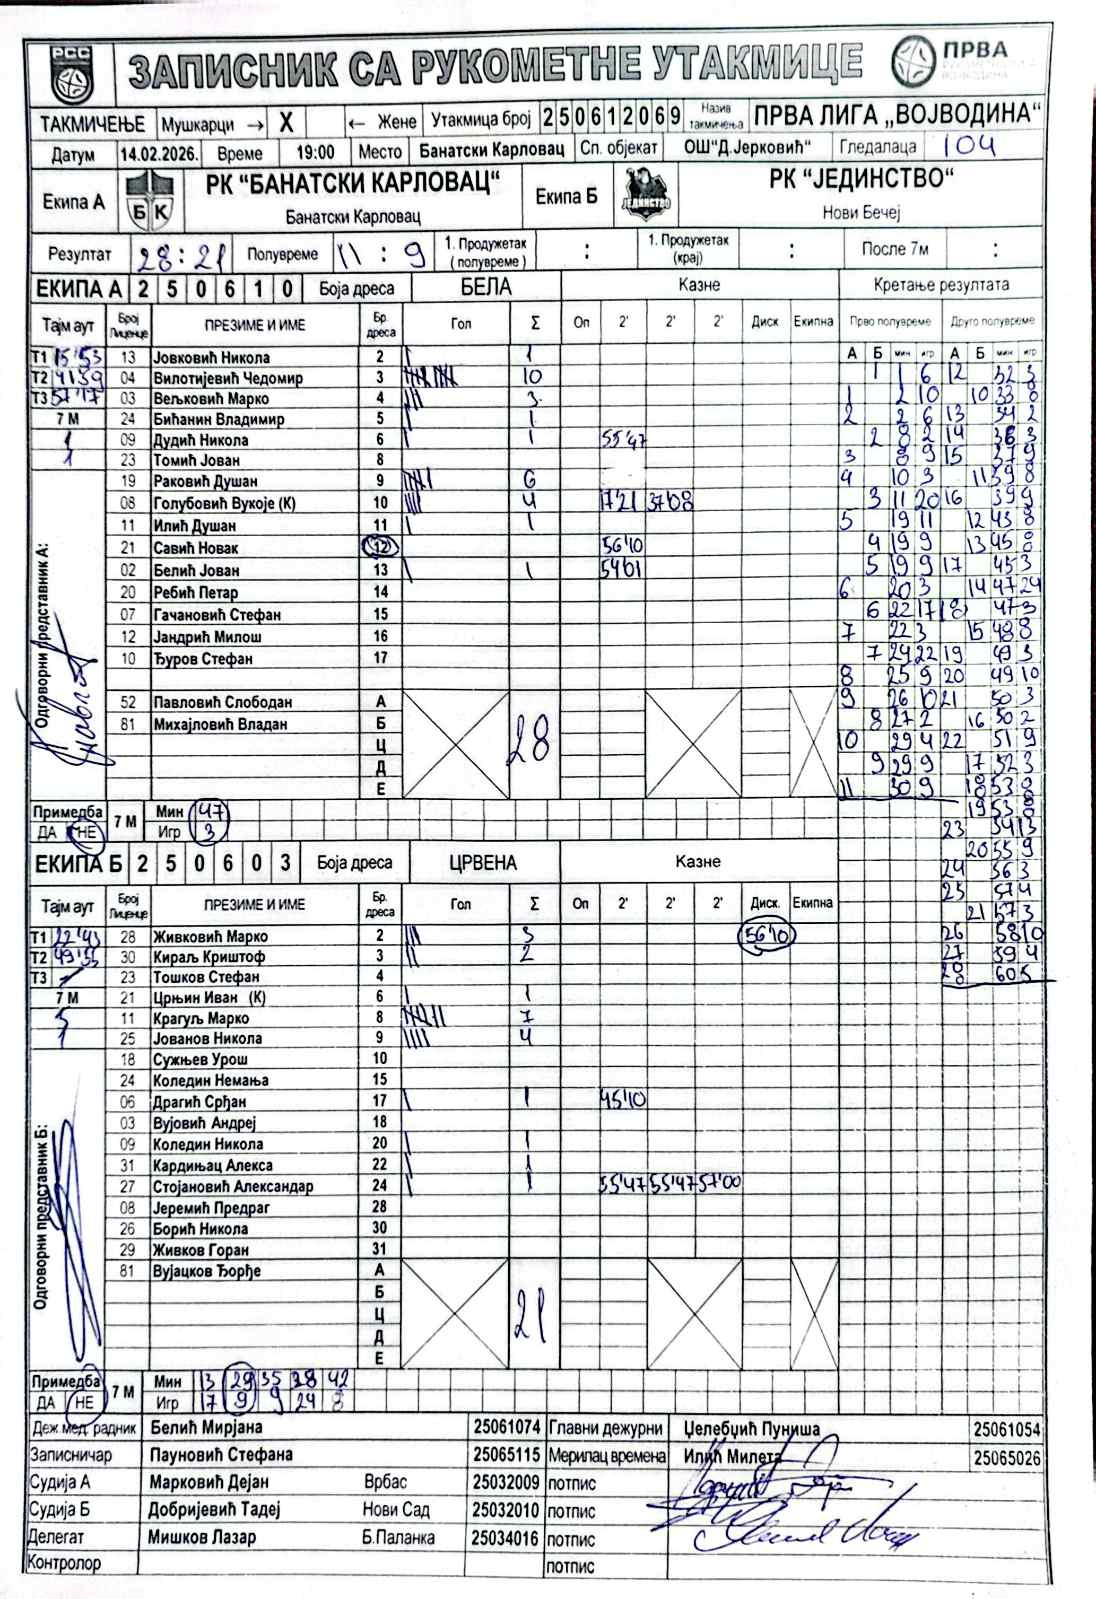 РСС ЗАПИСНИК СА РУКОМЕТНЕ УТАКМИЦЕ ПРВА РУКОМЕТНА ЛИГА ВОЈВОДИНА
ТАКМИЧЕЊЕ Мушкарци → X ← Жене Утакмица број 2 5 0 6 1 2 0 6 9 Назив такмичења ПРВА ЛИГА „ВОЈВОДИНА“
Датум 14.02.2026. Време 19:00 Место Банатски Карловац Сп. објекат ОШ“Д.Јерковић“ Гледалаца 104
Екипа А БК РК “БАНАТСКИ КАРЛОВАЦ“ Банатски Карловац Екипа Б ЈЕДИНСТВО РК “ЈЕДИНСТВО“ Нови Бечеј
Резултат 28:21 Полувреме 11 : 9 1. Продужетак ( полувреме ) : 1. Продужетак (крај) : После 7м :
ЕКИПА А 2 5 0 6 1 0 Боја дреса БЕЛА Казне Кретање резултата
Тајм аут Број Лиценце ПРЕЗИМЕ И ИМЕ Бр. дреса Гол Σ Оп 2' 2' 2' Диск Екипна Прво полувреме Друго полувреме
А Б мин игр А Б мин игр
Т1 15'53 13 Јовковић Никола 2 I 1
Т2 41'39 04 Вилотијевић Чедомир 3 10
Т3 57'17 03 Вељковић Марко 4 III 3
7 М 24 Бићанин Владимир 5 I 1
1 09 Дудић Никола 6 I 1 55'47
1 23 Томић Јован 8
19 Раковић Душан 9 6
08 Голубовић Вукоје (К) 10 IIII 4 17'21 37'08
11 Илић Душан 11 I 1
21 Савић Новак 12 56'10
02 Белић Јован 13 I 1 54'01
20 Ребић Петар 14
07 Гачановић Стефан 15
12 Јандрић Милош 16
10 Ђуров Стефан 17
Одговорни представник А:
52 Павловић Слободан А
81 Михајловић Владан Б
Ц
Д
Е
28
1 1 6 12 32 3
1 2 10 10 33 8
2 2 6 13 34 2
2 8 2 14 36 3
3 8 9 15 37 9
4 10 3 11 39 8
3 11 20 16 39 9
5 19 11 12 43 8
4 19 9 13 45 8
5 19 9 17 45 3
6 20 3 14 47 24
6 22 17 18 47 3
7 22 3 15 48 8
7 24 22 19 49 3
8 25 9 20 49 10
9 26 10 21 50 3
8 27 2 16 50 2
10 29 4 22 51 9
9 29 9 17 52 3
11 30 9 18 53 8
19 53 8
23 54 13
20 55 9
24 56 3
25 57 4
21 57 3
26 58 10
27 59 4
28 60 5
Примедба ДА НЕ 7 М Мин 47
Игр 3
ЕКИПА Б 2 5 0 6 0 3 Боја дреса ЦРВЕНА Казне
Тајм аут Број Лиценце ПРЕЗИМЕ И ИМЕ Бр. дреса Гол Σ Оп 2' 2' 2' Диск. Екипна
Т1 22'43 28 Живковић Марко 2 III 3 56'10
Т2 49'55 30 Кираљ Криштоф 3 II 2
Т3 23 Тошков Стефан 4
7 М 21 Црњин Иван (К) 6 I 1
5 11 Крагуљ Марко 8 7
1 25 Јованов Никола 9 IIII 4
18 Сужњев Урош 10
24 Коледин Немања 15
06 Драгић Срђан 17 I 1 45'10
03 Вујовић Андреј 18
09 Коледин Никола 20 I 1
31 Кардињац Алекса 22 I 1
27 Стојановић Александар 24 I 1 55'47 55'47 57'00
08 Јеремић Предраг 28
26 Борић Никола 30
29 Живков Горан 31
Одговорни представник Б:
81 Вујацков Ђорђе А
Б
Ц
Д
Е
21
Примедба ДА НЕ 7 М Мин 13 29 35 38 42
Игр 17 9 9 24 8
Деж мед. радник Белић Мирјана 25061074 Главни дежурни Џелебџић Пуниша 25061054
Записничар Пауновић Стефана 25065115 Мерилац времена Илић Милета 25065026
Судија А Марковић Дејан Врбас 25032009 потпис
Судија Б Добријевић Тадеј Нови Сад 25032010 потпис
Делегат Мишков Лазар Б.Паланка 25034016 потпис
Контролор потпис